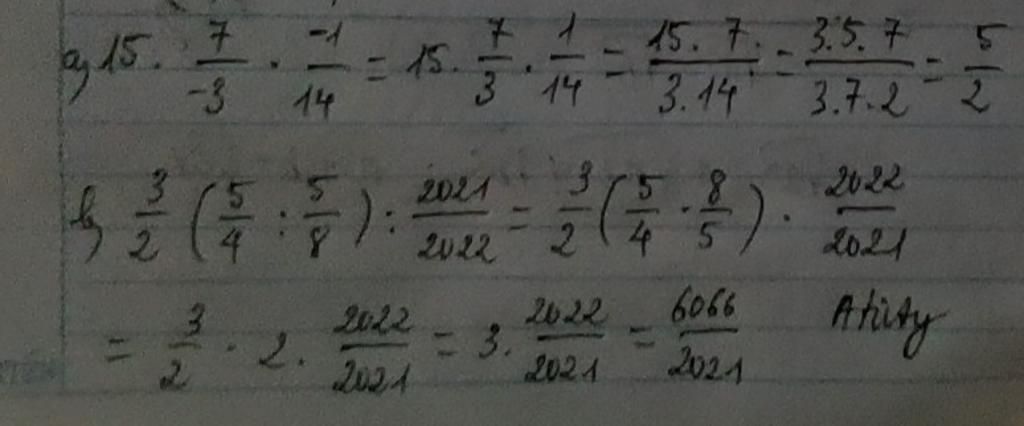 a) 15 . 7/-3 . -1/14 = 15 . 7/3 . 1/14 = 15 . 7 / 3 . 14 = 3.5.7 / 3.7.2 = 5/2
b) 3/2 (5/4 : 5/8) : 2021/2022 = 3/2 (5/4 . 8/5) . 2022/2021
= 3/2 . 2 . 2022/2021 = 3 . 2022/2021 = 6066/2021